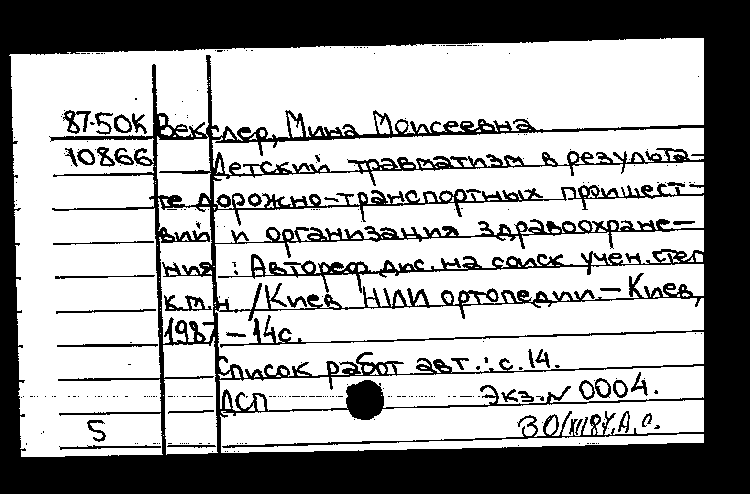 87-50К Векслер, Мина Моисеевна
10866 Детский травматизм в результа-
те дорожно-транспортных проишест-
вий и организация здравоохране-
ния : Автореф. дис. на соиск учен. степ
к.м.н. /Киев НИИ ортопедии. - Киев,
1987 - 14с.
Список работ авт.: с. 14.
ДСП Экз. N 0004.
5 30/XII87.